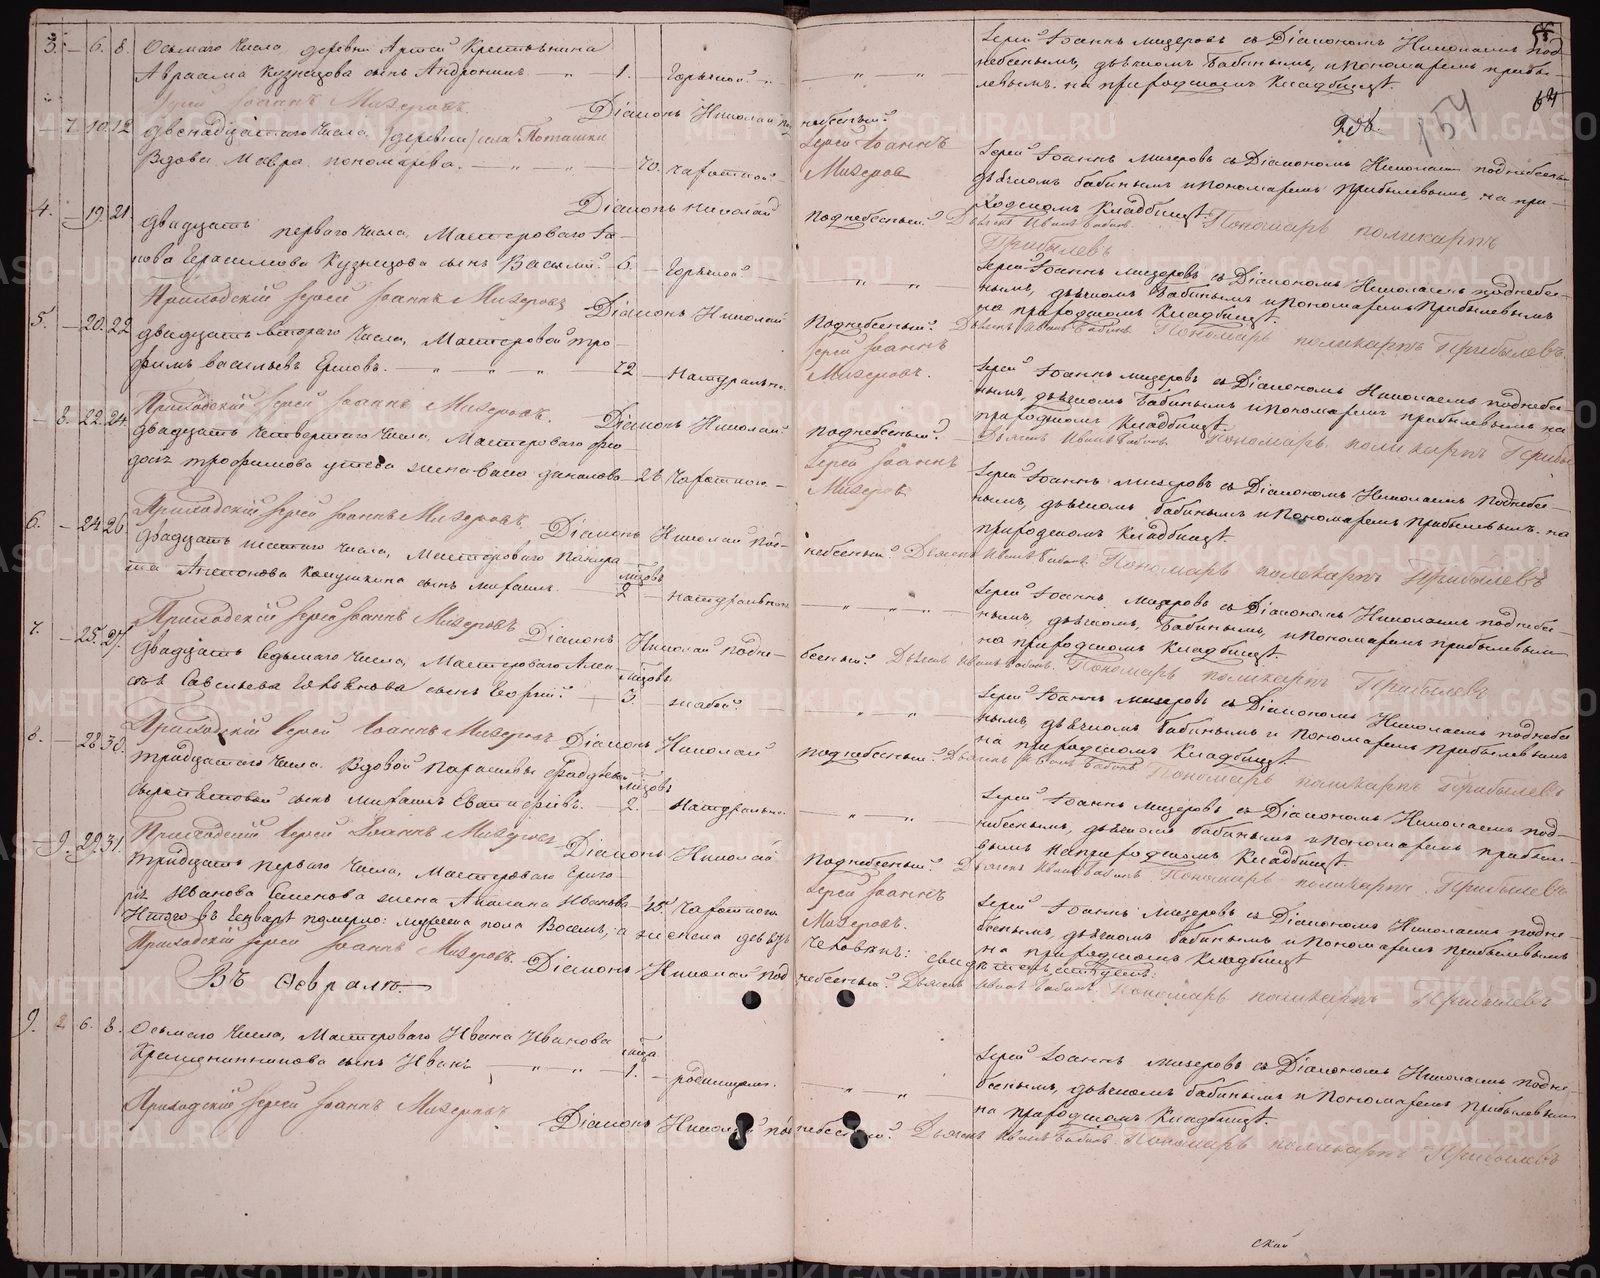 3. — 6. 8. Осьмаго числа, деревни Артей Крестьянина
Авраама Кузнецова сынъ Андроникъ. — " — 1. — Горячкой — "
Іерей Іоаннъ Мизеровъ. Діаконъ Николай Под-
— 7. 10. 12 двенадцатаго числа, деревни села Поташки
Вдова Мавра Пономарева. — " — " — 70. чахоткой
Діаконъ Николай
4. — 19. 21 двадцать перваго числа, Мастероваго
Герасимова Кузнецова сынъ Василій. 6. — Горячкой —
Приходскій Іерей Іоаннъ Мизеровъ Діаконъ Николай
5. — 20. 22 двадцать втораго числа, Мастеровой Тро-
фимъ Васильевъ — " — " — " — 72 — натурально.
Приходскій Іерей Іоаннъ Мизеровъ. Діаконъ Николай
— 8. 22. 24. двадцать четвертаго числа, Мастероваго
Трофимова жена 28 чахоткою —
Приходскій Іерей Іоаннъ Мизеровъ. Діаконъ Николай Под-
6. — 24 26 двадцать шестаго числа, Мастероваго
Антонова сынъ Михаилъ. — 2 — натурально
Приходскій Іерей Іоаннъ Мизеровъ Діаконъ Николай Подне-
7. — 25. 27. двадцать седьмаго числа, Мастероваго Алек-
Савельева сынъ Георгій — 3 —
Приходскій Іерей Іоаннъ Мизеровъ Діаконъ Николай
8. — 28. 30. тридцатаго числа. Вдовой
сынъ Михаилъ — 2. — натурально.
Приходскій Іерей Іоаннъ Мизеровъ Діаконъ Николай
— 9. 29. 31. тридцать перваго числа, Мастероваго Григо-
рія Иванова Семенова жена Иванова чахоткою
Итого въ Генварѣ померло: мужеска пола Восемь, а женска девять
Приходскій Іерей Іоаннъ Мизеровъ. Діаконъ Николай Под
Въ Февралѣ.
9. 2. 6. 8. Осьмаго числа, Мастероваго Ивана Иванова
Крашенинникова сынъ Иванъ — " — " — 1. — родимцемъ.
Приходскій Іерей Іоаннъ Мизеровъ Діаконъ Николай Под
Іерей Іоаннъ Мизеровъ съ Діакономъ Николаемъ Под-
небеснымъ, дьячкомъ Бабинымъ, и Пономаремъ Прибы-
левымъ. на приходскомъ Кладбищѣ.
64
154
небесный
Іерей Іоаннъ
Мизеровъ
Іерей Іоаннъ Мизеровъ съ Діакономъ Николаемъ Поднебесны-
дьячкомъ Бабинымъ и Пономаремъ Прибылевымъ, на при-
ходскомъ Кладбищѣ.
Поднебесный Дьячекъ Иванъ Бабинъ. Пономарь Поликарпъ
Прибылевъ
Іерей Іоаннъ Мизеровъ съ Діакономъ Николаемъ Поднебес-
нымъ, дьячкомъ Бабинымъ и Пономаремъ Прибылевымъ
на приходскомъ Кладбищѣ.
Поднебесный Дьячекъ Иванъ Бабинъ. Пономарь Поликарпъ Прибылевъ.
Іерей Іоаннъ
Мизеровъ.
Іерей Іоаннъ Мизеровъ съ Діакономъ Николаемъ Поднебес-
нымъ, дьячкомъ Бабинымъ и Пономаремъ Прибылевымъ на
приходскомъ Кладбищѣ.
Поднебесный Дьячекъ Иванъ Бабинъ. Пономарь Поликарпъ Прибы
Іерей Іоаннъ
Мизеровъ
Іерей Іоаннъ Мизеровъ съ Діакономъ Николаемъ Поднебес-
нымъ, дьячкомъ Бабинымъ и Пономаремъ Прибылевымъ. на
приходскомъ Кладбищѣ
небесный Дьячекъ Иванъ Бабинъ Пономарь Поликарпъ Прибылевъ
Іерей Іоаннъ Мизеровъ съ Діакономъ Николаемъ Поднебес-
нымъ, дьячкомъ, Бабинымъ, и Пономаремъ Прибылевымъ
на приходскомъ Кладбищѣ.
бесный Дьячекъ Иванъ Бабинъ. Пономарь Поликарпъ Прибылевъ
Іерей Іоаннъ Мизеровъ съ Діакономъ Николаемъ Поднебес
нымъ дьячкомъ Бабинымъ и Пономаремъ Прибылевымъ
на приходскомъ Кладбищѣ
Поднебесный Дьячекъ Иванъ Бабинъ Пономарь Поликарпъ Прибылевъ
Іерей Іоаннъ Мизеровъ съ Діакономъ Николаемъ Под-
небеснымъ, дьячкомъ Бабинымъ и Пономаремъ Прибыле-
вымъ на приходскомъ Кладбищѣ
Поднебесный Дьячекъ Иванъ Бабинъ Пономарь Поликарпъ Прибылевъ
Іерей Іоаннъ
Мизеровъ.
Іерей Іоаннъ Мизеровъ съ Діакономъ Николаемъ Подне-
беснымъ, дьячкомъ Бабинымъ и Пономаремъ Прибылевымъ
на приходскомъ Кладбищѣ
человѣкъ:
небесный Дьячекъ Иванъ Бабинъ Пономарь Поликарпъ Прибылевъ
Іерей Іоаннъ Мизеровъ съ Діакономъ Николаемъ Подне-
беснымъ, дьячкомъ Бабинымъ и Пономаремъ Прибылевымъ
на приходскомъ Кладбищѣ.
небесный Дьячекъ Иванъ Бабинъ Пономарь Поликарпъ Прибылевъ
ской
METRIKI.GASO-URAL.RU